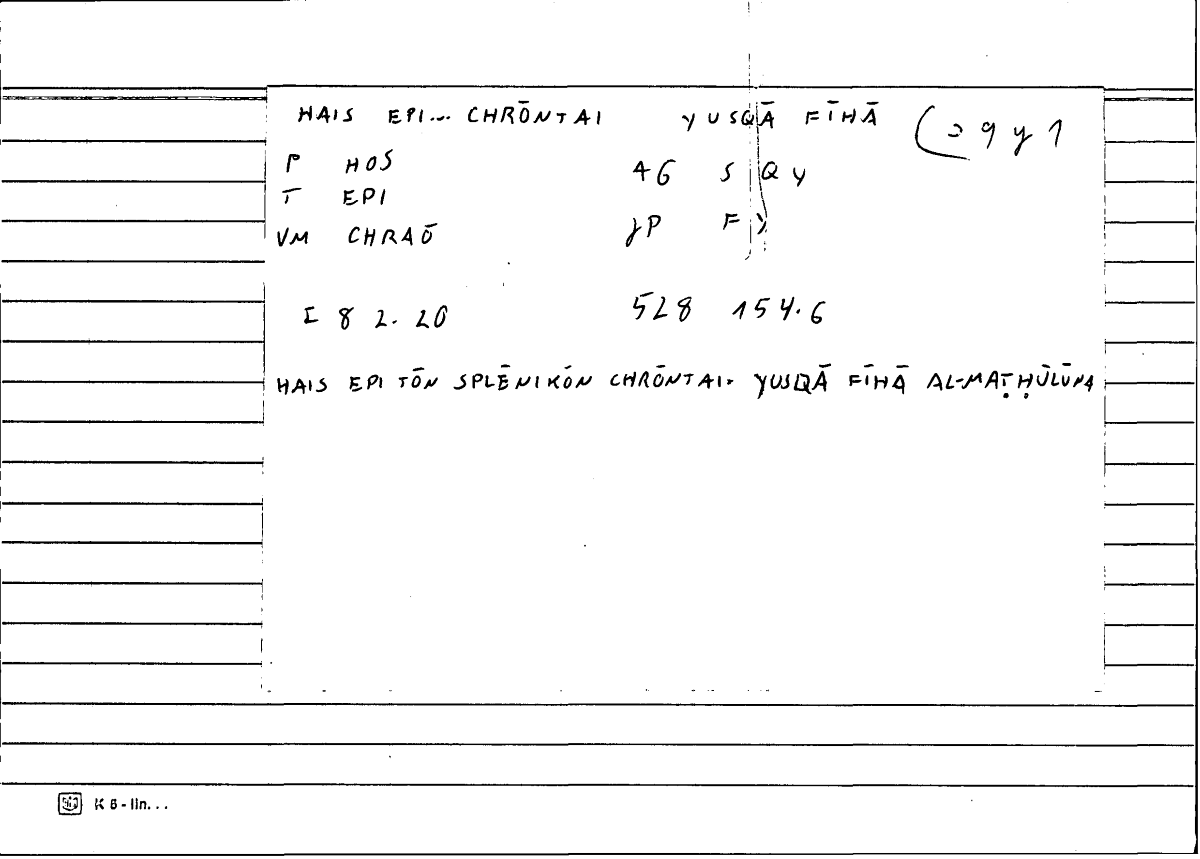 HAIS EPI... CHRŌNTAI YUSQĀ FĪHĀ
P HOS AG S Q Y
T EPI
VM CHRAŌ JP F Y
I 8 2. 20 528 154.6
HAIS EPI TŌN SPLĒNIKŌN CHRŌNTAI. YUSQĀ FĪHĀ AL-MAṬḤŪLŪNA
K 6 - lin...